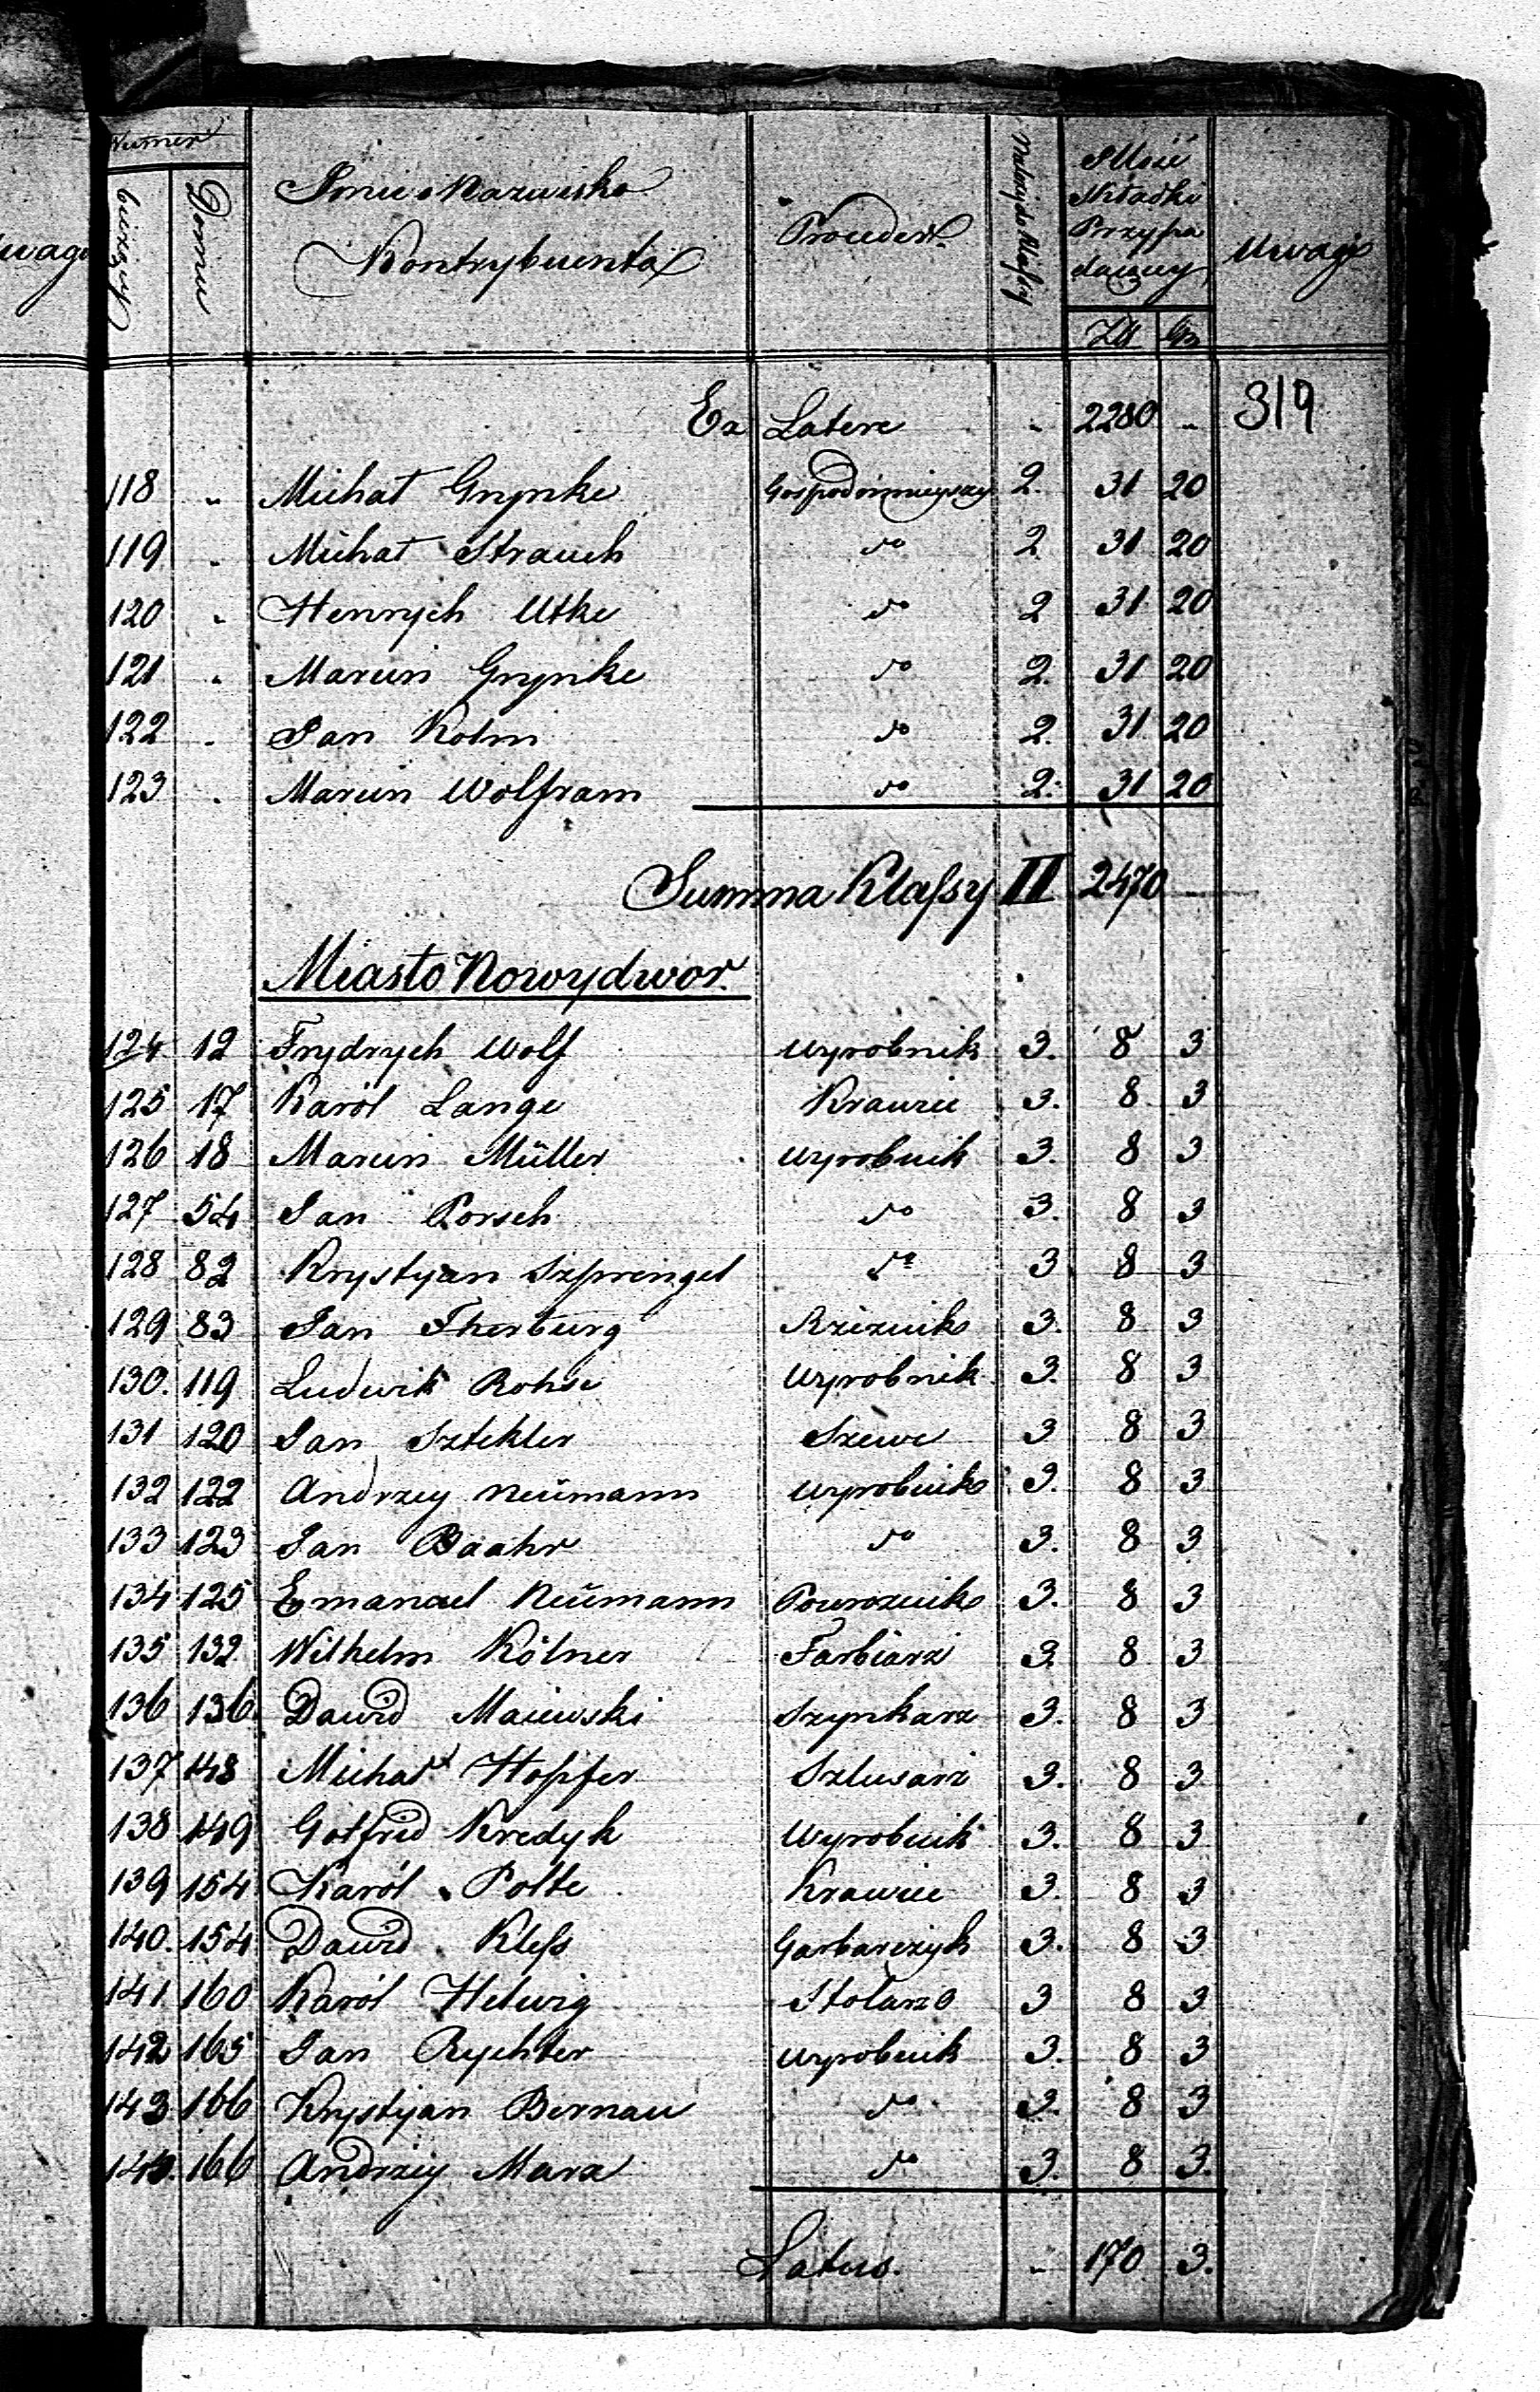 Numer
bieżący
Domu
Imie i Nazwisko
Kontrybuenta
Proceder
Należy do Klassy
Ilość
Składki
Przypa
daiącey
Zł Gr
Uwagi
Ex Latere - 2280 - 319
118 - Michał Grynke Gospod: mnieyszy 2. 31 20
119 - Michał Strauch do 2 31 20
120 - Henrych Utke do 2 31 20
121 - Marcin Grynke do 2. 31 20
122 - Jan Kolm do 2. 31 20
123 - Marcin Wolfram do 2. 31 20
Summa Klassy II 2470
Miasto Nowydwor.
124 12 Frydrych Wolf wyrobnik 3. 8 3
125 17 Karól Lange Krawiec 3. 8 3
126 18 Marcin Müller wyrobnik 3. 8 3
127 54 Jan Porsch do 3. 8 3
128 82 Krystyan Szprengel do 3 8 3
129 83 Jan Therburg Rzeznik 3. 8 3
130. 119 Ludwik Rohse wyrobnik 3. 8 3
131 120 Jan Sztekler Szewc 3 8 3
132 122 Andrzey Neümann wyrobnik 3. 8 3
133 123 Jan Baahr do 3. 8 3
134 125 Emanuel Neümann Powroznik 3. 8 3
135 132 Wilhelm Kölner Farbiarz 3 8 3
136 136. Dawid Maiewski Szynkarz 3. 8 3
137 148 Michał Hopfer Szlusarz 3. 8 3
138 149 Gotfrid Kredyk Wyrobnik 3. 8 3
139 154 Karól Polte Krawiec 3. 8 3
140. 154 Dawid Kless Garbarczyk 3. 8 3
141 160 Karól Helwig Stolarz 3 8 3
142 165 Jan Rychter wyrobnik 3. 8 3
143 166 Krystyan Bernau do 3. 8 3
144. 166 Andrzey Marx do 3. 8 3.
Latus. - 170 3.